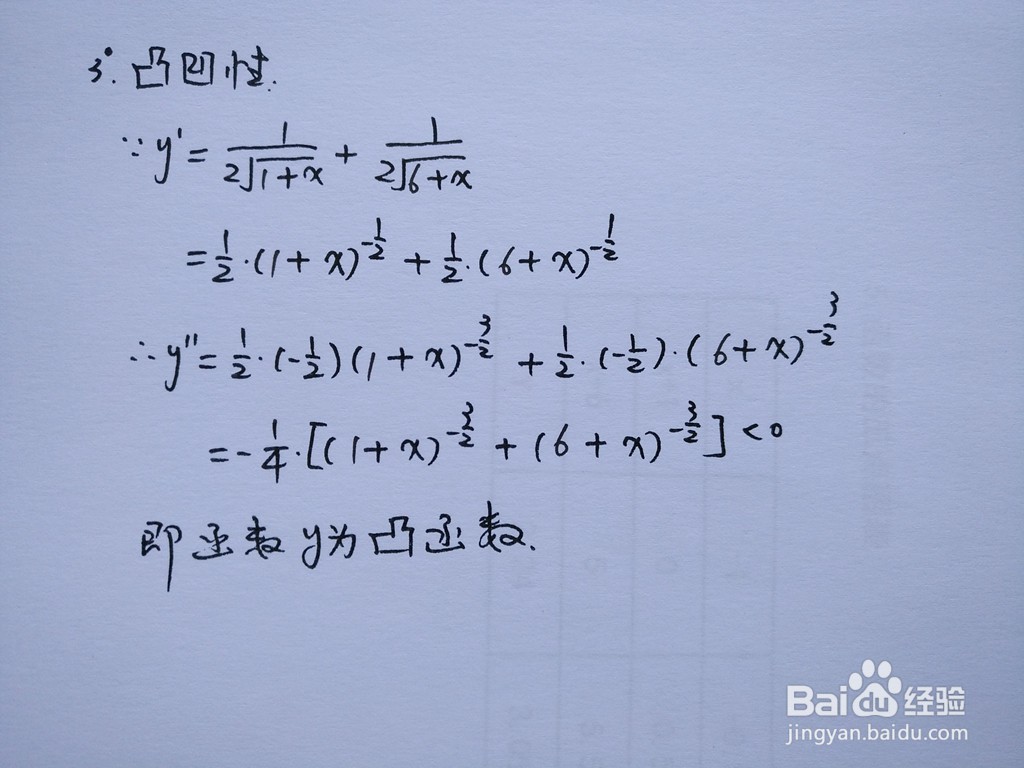 3°. 凸凹性.
∵y'= 1/(2√(1+x)) + 1/(2√(6+x))
=1/2·(1+x)^(-1/2) + 1/2·(6+x)^(-1/2)
∴y''=1/2·(-1/2)(1+x)^(-3/2) + 1/2·(-1/2)·(6+x)^(-3/2)
=-1/4·[(1+x)^(-3/2) + (6+x)^(-3/2)]<0
即函数y为凸函数.
Baidu经验
jingyan.baidu.com